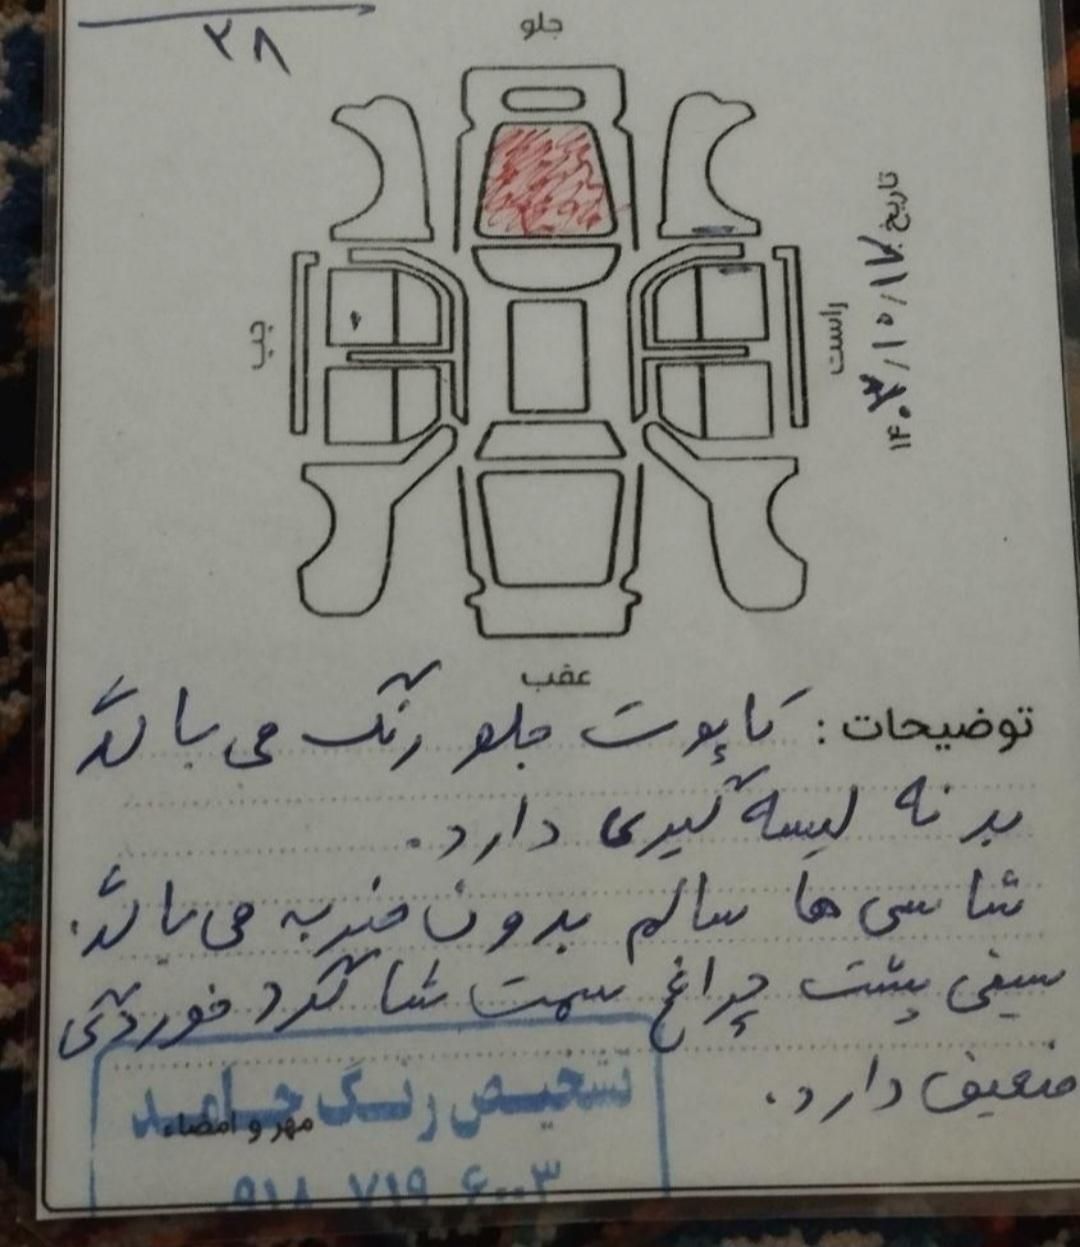 ۲۸
جلو
تاریخ
راست
چپ
عقب
توضیحات: کاپوت جلو رنگ می باشد
بدنه لیسه گیری دارد.
شاسی ها سالم بدون ضربه می باشد.
سینی پشت چراغ سمت شاگرد خوردگی
ضعیف دارد.
تشخیص رنگ حامد
مهر و امضاء
۹۱۸ ۷۱۹ ۶۰۰۳